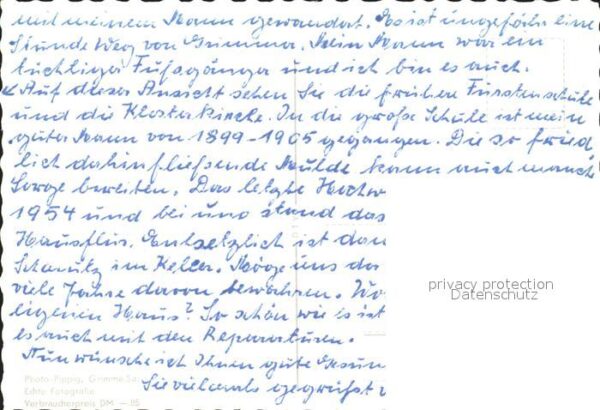 mit meinem Mann gewandert. Es ist ungefähr eine
Stunde Weg von Grimma. Mein Mann war ein
tüchtiger Fußgänger und ich bin es auch.
Auf dieser Ansicht sehen Sie die frühere Fürstenschule
und die Klosterkirche. In die große Schule ist mein
guter Mann von 1899-1905 gegangen. Die so fried
lich dahinfließende Mulde kann auch manche
Sorge bereiten. Das letzte Hochw
1954 und bei uns stand das
Hausflur. Entsetzlich ist dan
Schmutz im Keller. Möge uns da
viele Jahre davon bewahren. Wo
eigenen Haus? So schön wie es ist
es auch mit den Reparaturen.
Nun wünsche ich Ihnen gute Gesun
Sie vielmals gegrüßt v
privacy protection
Datenschutz
Photo-Pippig, Grimma-Sa
Echte Fotografie
Verbraucherpreis DM -.15